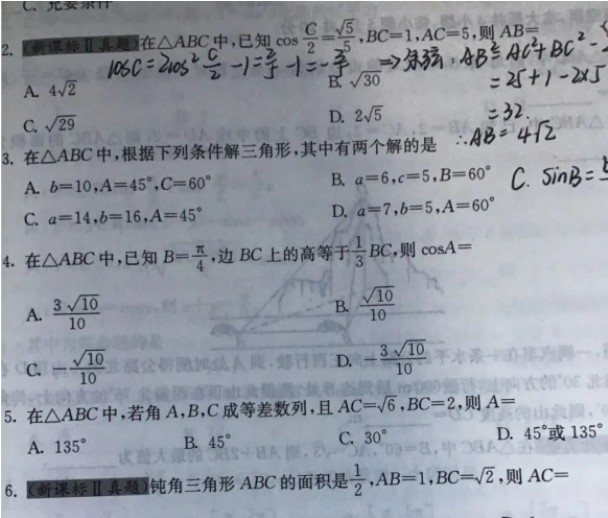 C. 充要条件
2. (新课标Ⅱ真题)在△ABC中,已知 cos C/2=√5/5,BC=1,AC=5,则 AB=
cosC=2cos² C/2 -1=2/5-1=-3/5 ⇒余弦:AB²=AC²+BC²-
A. 4√2 B. √30
=25+1-2×5
C. √29 D. 2√5
=32
∴AB=4√2
3. 在△ABC中,根据下列条件解三角形,其中有两个解的是
A. b=10,A=45°,C=60° B. a=6,c=5,B=60°
C. SinB=
C. a=14,b=16,A=45° D. a=7,b=5,A=60°
4. 在△ABC中,已知 B=π/4,边 BC 上的高等于 1/3 BC,则 cosA=
A. 3√10/10 B. √10/10
C. -√10/10 D. -3√10/10
5. 在△ABC中,若角 A,B,C 成等差数列,且 AC=√6,BC=2,则 A=
A. 135° B. 45° C. 30° D. 45°或 135°
6. (新课标Ⅱ真题)钝角三角形 ABC 的面积是 1/2,AB=1,BC=√2,则 AC=